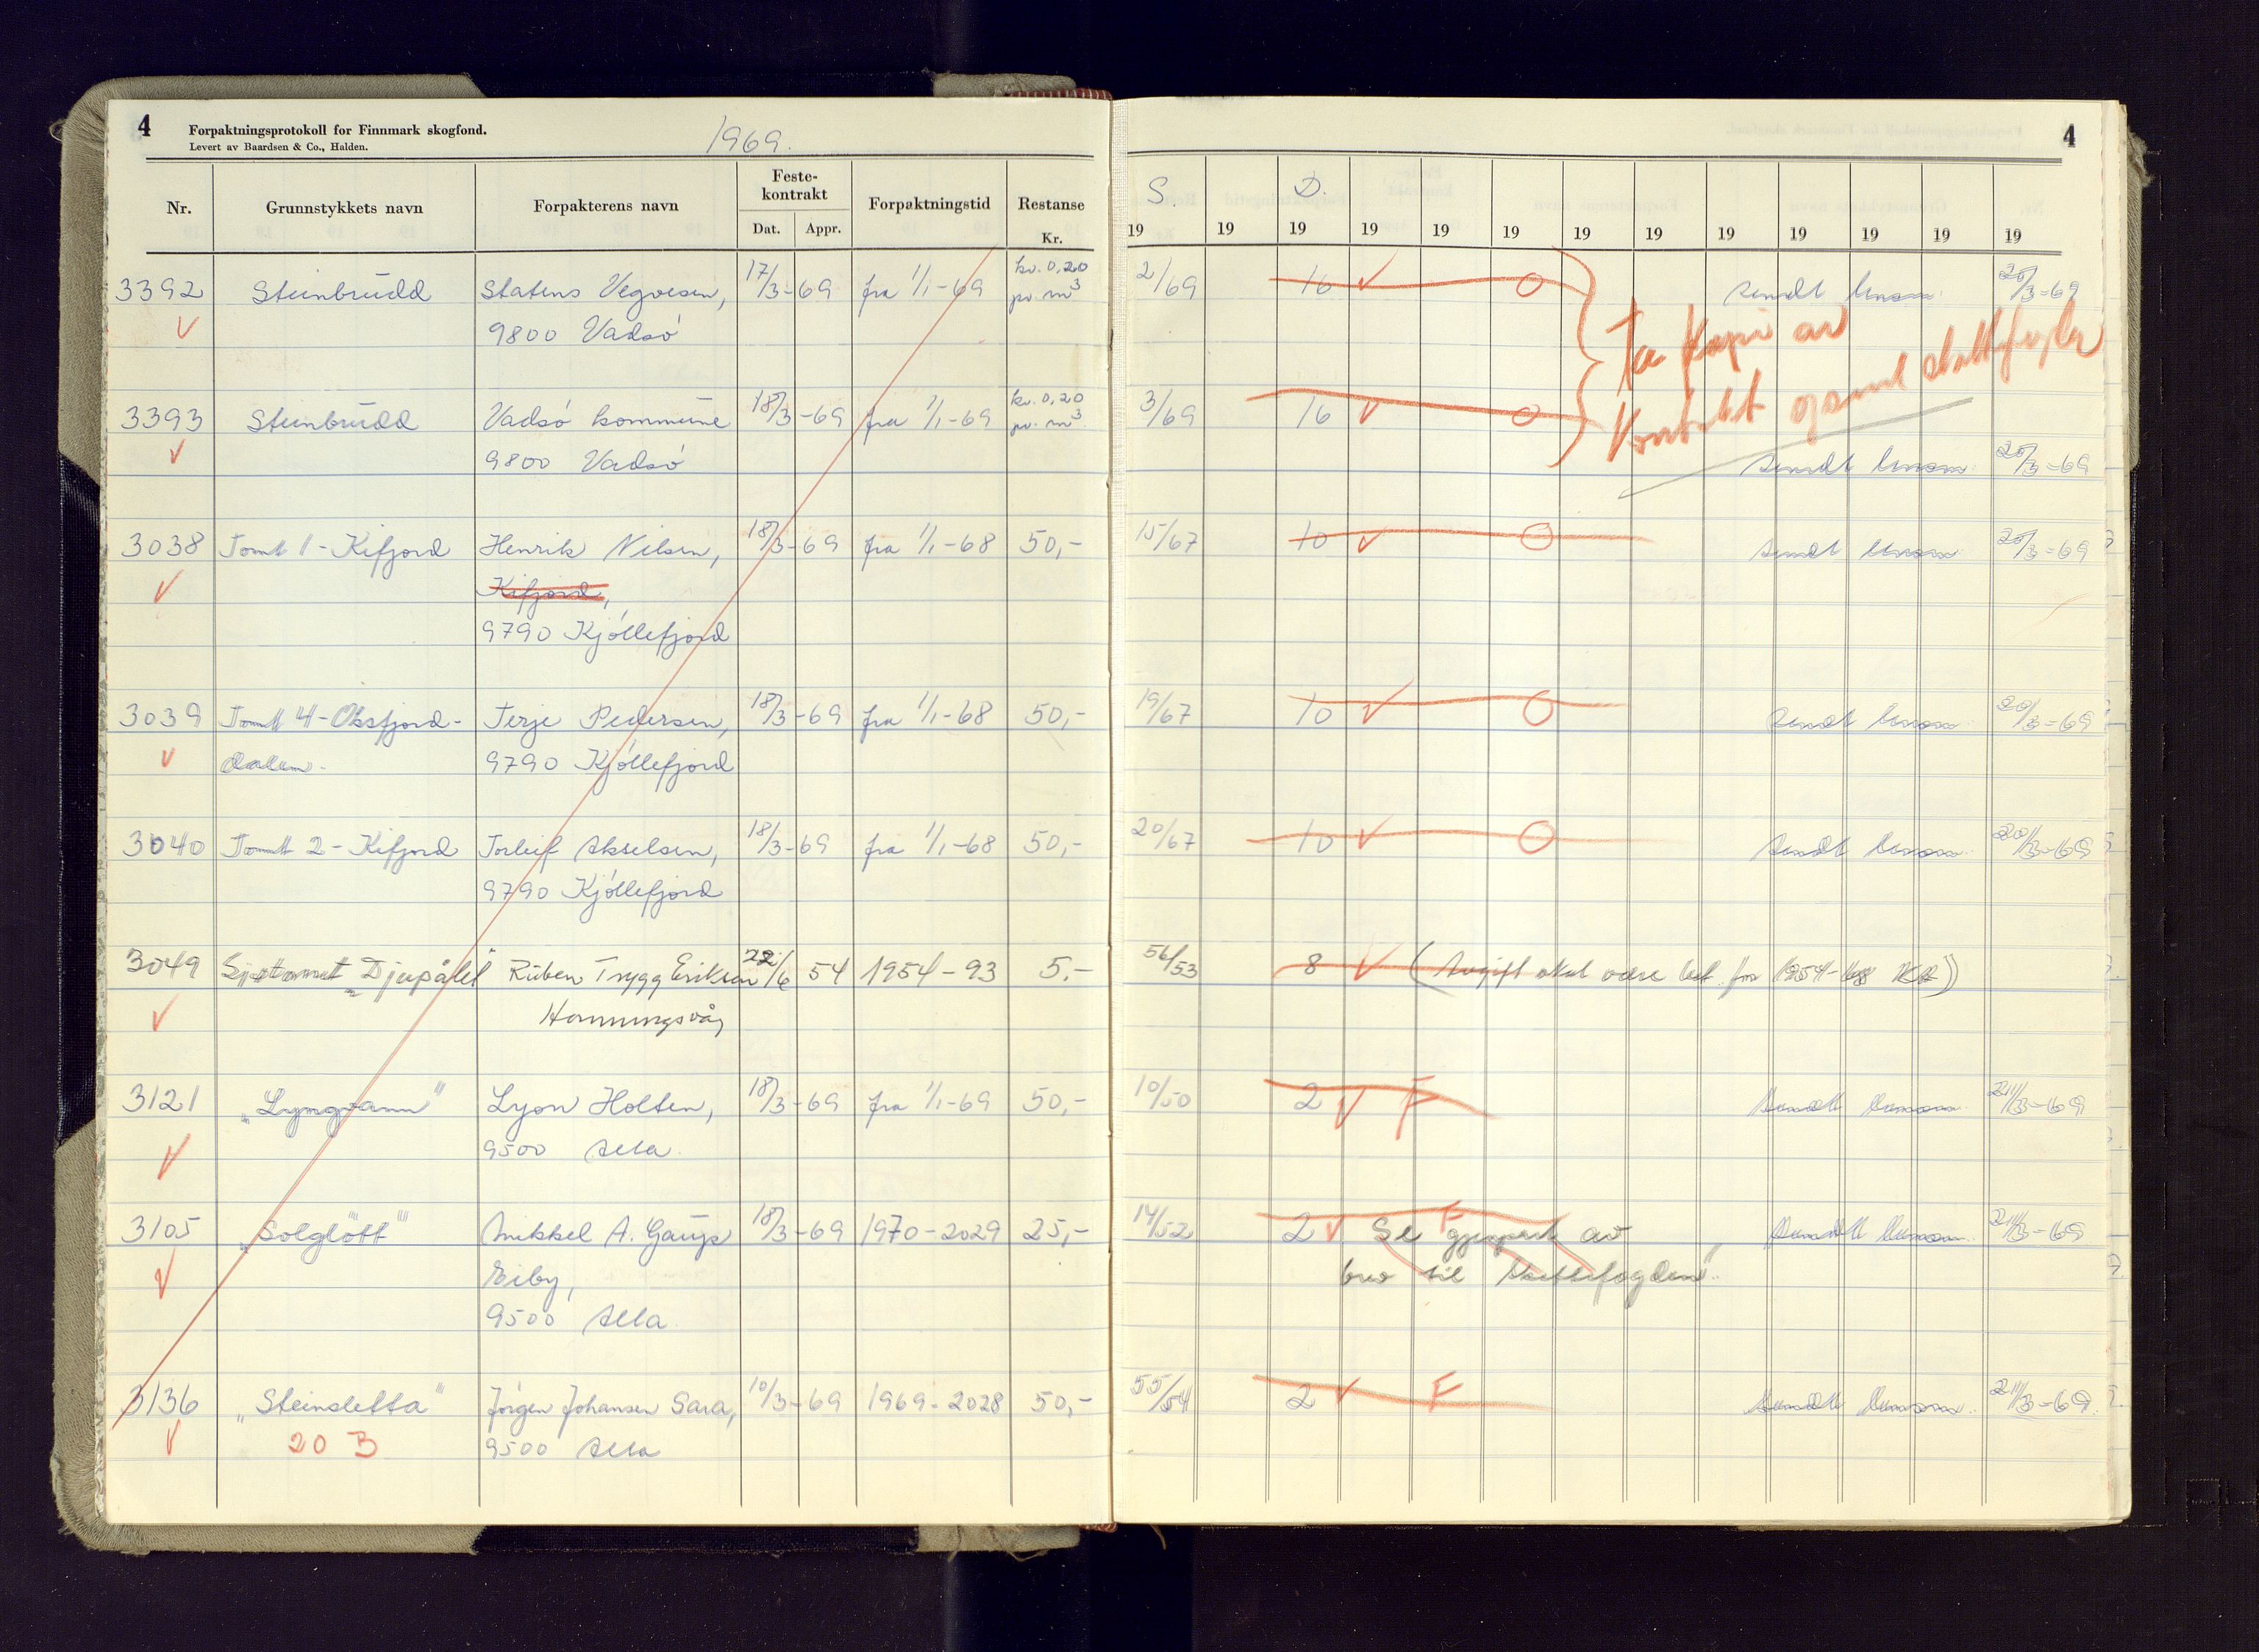 4 Forpaktningsprotokoll for Finnmark skogfond. 1969.
Levert av Baardsen & Co., Halden.
Nr. Grunnstykkets navn Forpakterens navn Feste-kontrakt Dat. Appr. Forpaktningstid Restanse Kr.
3392 Steinbrudd Statens Vegvesen, 17/3-69 fra 1/1-69 kr. 0,20
9800 Vadsö pr. m3
3393 Steinbrudd Vadsö kommune 18/3-69 fra 1/1-69 kr. 0,20
9800 Vadsö pr. m3
3038 Tomt 1 - Kifjord Henrik Nilsen, 18/3-69 fra 1/1-68 50,-
Kifjord,
9790 Kjöllefjord
3039 Tomt 4 - Oksfjord- Terje Pedersen, 18/3-69 fra 1/1-68 50,-
dalen. 9790 Kjöllefjord
3040 Tomt 2 - Kifjord Torleif Akselsen, 18/3-69 fra 1/1-68 50,-
9790 Kjöllefjord
3049 "Djupålet" Ruben Trygg Eriksen 22/6 54 1954-93 5,-
Honningsvåg
3121 "Lyngvann" Lyon Holten, 18/3-69 fra 1/1-69 50,-
9500 Alta
3105 "Solglött" Mikkel A. Gaup 18/3-69 1970-2029 25,-
Eiby,
9500 Alta
3136 "Steinsletta" Jörgen Johansen Sara, 10/3-69 1969-2028 50,-
20 B 9500 Alta
4
S. D.
19 19 19 19 19 19 19 19 19 19 19 19 19
2/69 16 sendt 20/3-69
Ta kopi av
3/69 16
Kontrakt skattefogden
sendt 20/3-69
15/67 10 sendt 20/3-69
19/67 10 sendt 20/3-69
20/67 10 sendt 20/3-69
56/53 8 (Avgift skal være bet. for 1954-68)
10/50 2 F sendt 21/3-69
14/52 2 F Se gjenpart av sendt 21/3-69
brev til skattefogden".
55/54 2 F sendt 21/3-69